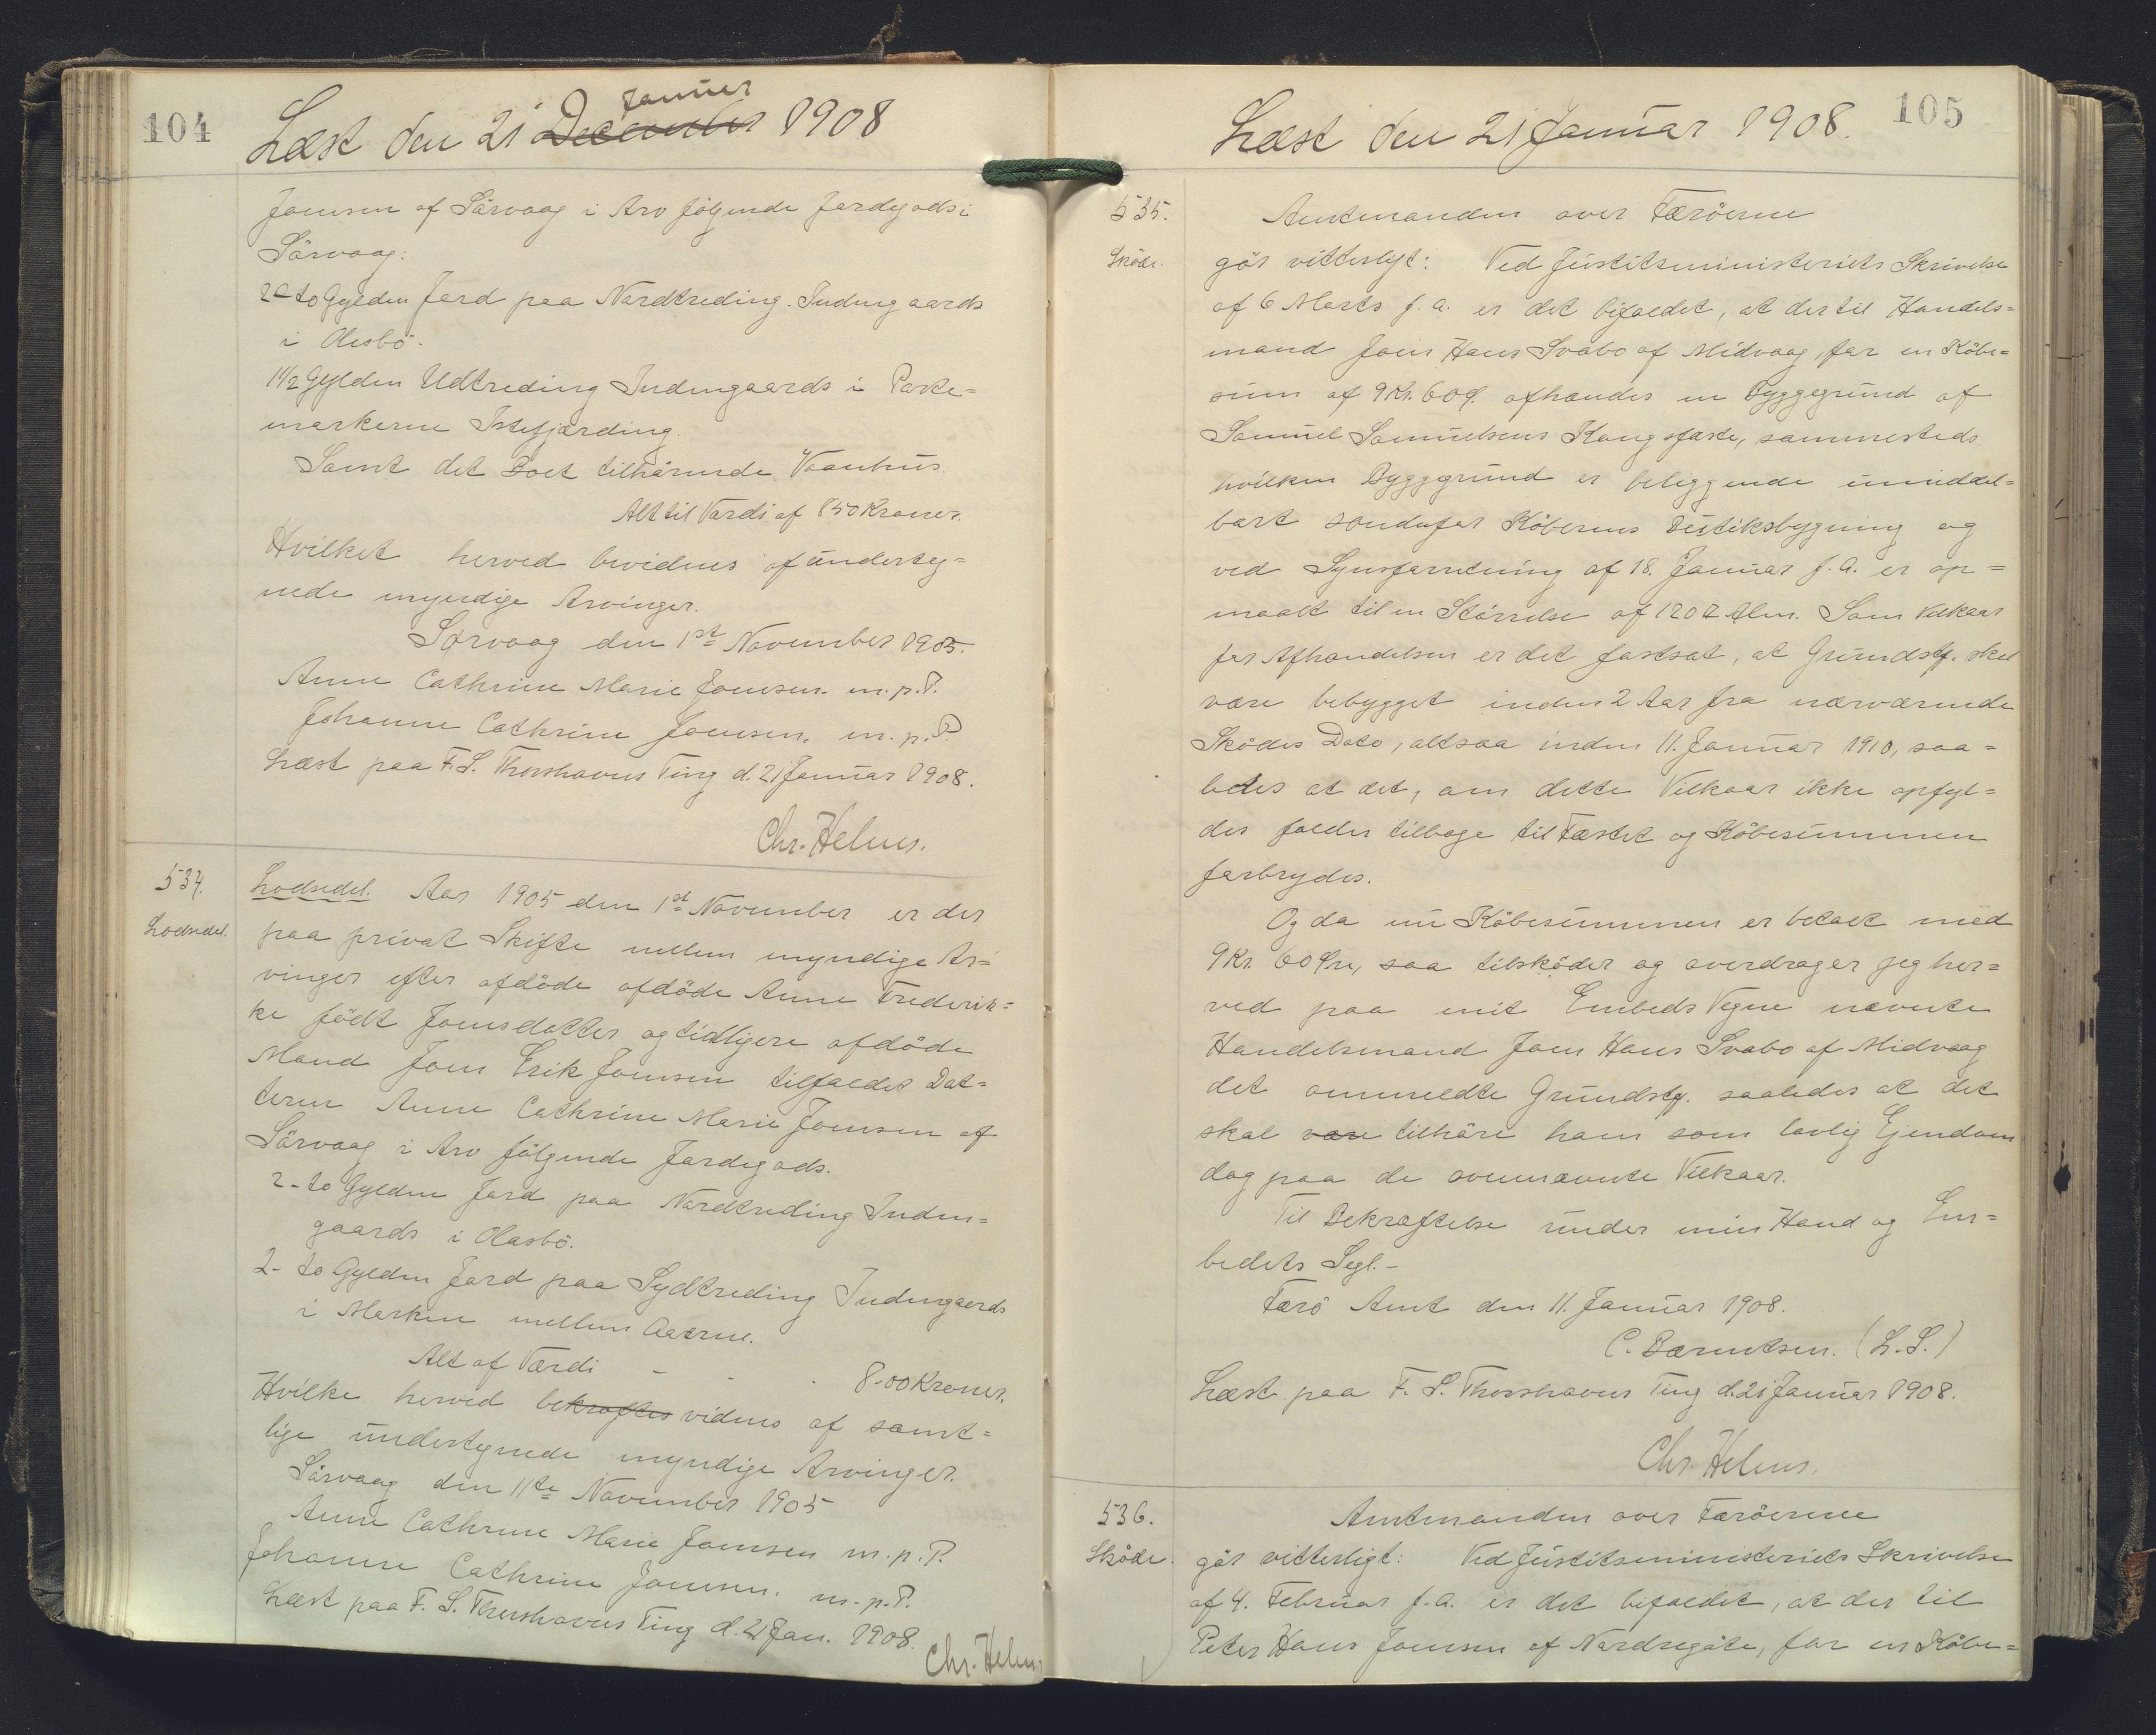 104
Læst den 21 December Januar 1908
Joensen af Sörvaag i Arv fölgende Jordegods i
Sörvaag:
2 - to Gylden Jord paa Nordtreding. Indengaards
i Olesbö.
1 1/2 Gylden Udtreding Indengaards i Parte-
markerne Istefjærding.
Samt det Boet tilhörende Vaanhus.
Alt til Værdi af 850 Kroner.
Hvilket herved bevidnes af underteg-
nede myndige Arvinger.
Sørvaag den 1st November 1905.
Anne Cathrine Marie Joensen. m.p.P.
Johanne Cathrine Joensen. m.p.P.
Læst paa F. S. Thorshavns Ting d. 21 Januar 1908.
Chr. Helms.
534.
Lodsedel.
Lodsedel. Aar 1905 den 1st November er der
paa privat Skifte mellem myndige Ar-
vinger efter afdöde afdöde Anne Frederik-
ke födt Joensdatter og tidligere afdöde
Mand Joen Erik Joensen tilfaldet Dat-
teren Anne Cathrine Marie Joensen af
Sörvaag i Arv fölgende Jordegods.
2 - to Gylden Jord paa Nordtreding Inden-
gaards i Olasbö.
2 - to Gylden Jord paa Sydtreding Indengaards
i Marken mellem Aaerne.
Alt af Værdi - - - 800 Kroner.
Hvilke herved bekræftes vidnes af samt-
lige undertegnede myndige Arvinger.
Sörvaag den 11te November 1905
Anne Cathrine Marie Joensen m.p.P.
Johanne Cathrine Joensen. m.p.P.
Læst paa F. S. Thorshavns Ting d. 21 Jan. 1908.
Chr. Helms
105
Læst den 21 Januar 1908.
535.
Sköde.
Amtmanden over Færöerne
gör vitterligt: Ved Justitsministeriets Skrivelse
af 6 Marts f.a. er det bifaldet, at der til Handels-
mand Joen Hans Svabo af Midvaag for en Köbe-
sum af 9 Kr. 60 Ø. afhændes en Byggegrund af
Samuel Samuelsens Kongsfæste, sammesteds
hvilken Byggegrund er beliggende umiddel-
bart söndenfor Köberens Butiksbygning og
ved Synsforretning af 18. Januar f.a. er op-
maalt til en Störrelse af 120 □ Alen. Som Vilkaar
for Afhændelsen er det fastsat, at Grundstg. skal
være bebygget inden 2 Aar fra nærværende
Skødes Dato, altsaa inden 11. Januar 1910, saa-
ledes at det, om dette Vilkaar ikke opfyl-
des falder tilbage til Fæstet og Köbesummen
forbrydes.
Og da nu Köbesummen er betalt med
9 Kr. 60 Øre, saa tilsköder og overdrager jeg her-
ved paa mit Embeds Vegne nævnte
Handelsmand Joen Hans Svabo af Midvaag
det ommeldte Grundstg. saaledes at det
skal være tilhöre ham som lovlig Ejendom
dog paa de ovennævnte Vilkaar.
Til Bekræftelse under min Haand og Em-
bedets Segl. -
Færö Amt den 11. Januar 1908.
C. Bærentsen. (L.S.)
Læst paa F. S. Thorshavns Ting d. 21 Januar 1908.
Chr. Helms.
536.
Sköde.
Amtmanden over Færöerne
gör vitterligt: Ved Justitsministeriets Skrivelse
af 4. Februar f.a. er det bifaldet, at der til
Peter Hans Joensen af Nordregöte, for en Köbe-